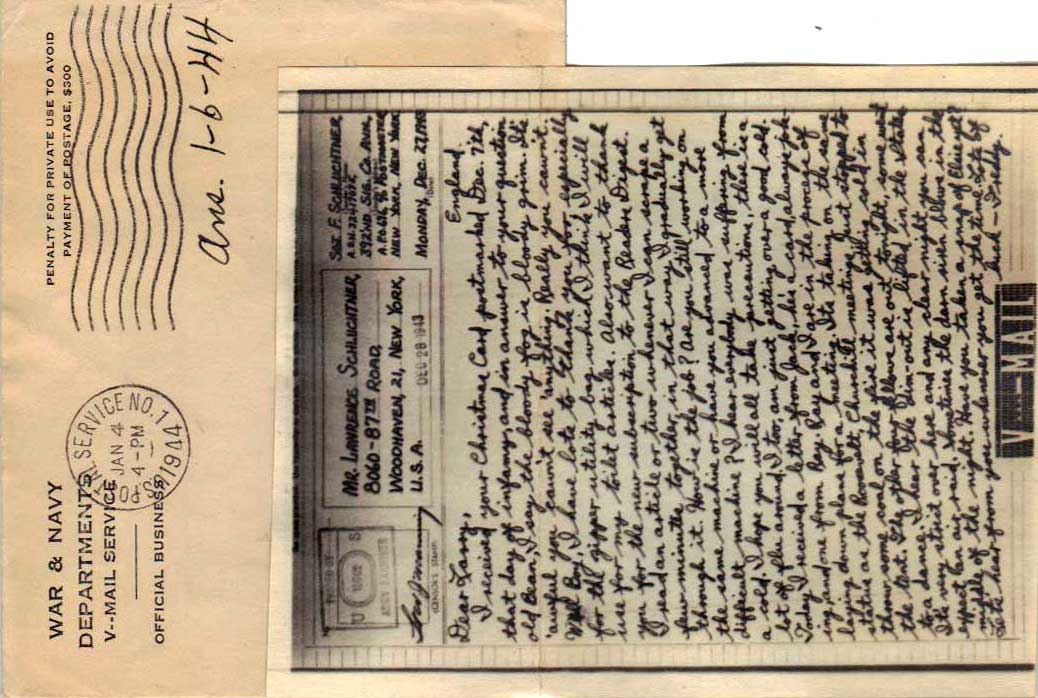 PENALTY FOR PRIVATE USE TO AVOID
PAYMENT OF POSTAGE, $300
Ans. 1-6-44
WAR & NAVY
DEPARTMENTS
V--MAIL SERVICE
OFFICIAL BUSINESS
SERVICE NO. 1
JAN 4
4-PM
1944
PASSED BY
U S
ARMY EXAMINER
CENSOR'S STAMP
MR. LAWRENCE SCHLUCHTNER,
8060-87TH ROAD,
WOODHAVEN, 21, NEW YORK,
U.S.A.
DEC 28 1943
SGT. F. SCHLUCHTNER,
392ND. SIG. CO. AVN.,
NEW YORK, NEW YORK
MONDAY, DEC. 27, 1943
England.
Dear Larry,
I received your Christmas Card postmarked Dec. 7th,
that day of infamy, and in answer to your question
old Bean, I say the bloody fog is bloody grim. It's
'awful you cawn't see 'anything. Really you cawn't.
Well Boy, I have lots to thank you for, especially
for the zipper utility bag which I think I will
use for my toilet articles. Also want to thank
you for the new subscription to the Readers Digest.
I read an article or two whenever I can scrape a
few minutes together, in that way I gradually get
through it. How is the job? Are you still working on
the same machine or have you advanced to a more
difficult machine? I hear everybody was suffering from
a cold. I hope you will all take precautions, there is a
lot of flu around. I too, am just getting over a good cold.
Today I received a letter from Jack, he's a card, always jok-
ing, and one from Ray. Ray and I are in the process of
laying down plans for a meeting. Its taking on the same
status as the Roosevelt, Churchill meetings. Just stopped to
throw some coal on the fire it was getting cold in
the tent. The other four fellows are out tonight, some went
to a dance. I hear the dim-out is lifted in the States.
Its very strict over here and any clear night you can
expect an air raid. Sometimes the darn siren blows in the
middle of the night. Have you taken a of Elsie yet?
Lets hear from you whenever you get the time. Lots of
luck - Freddy.
V---MAIL